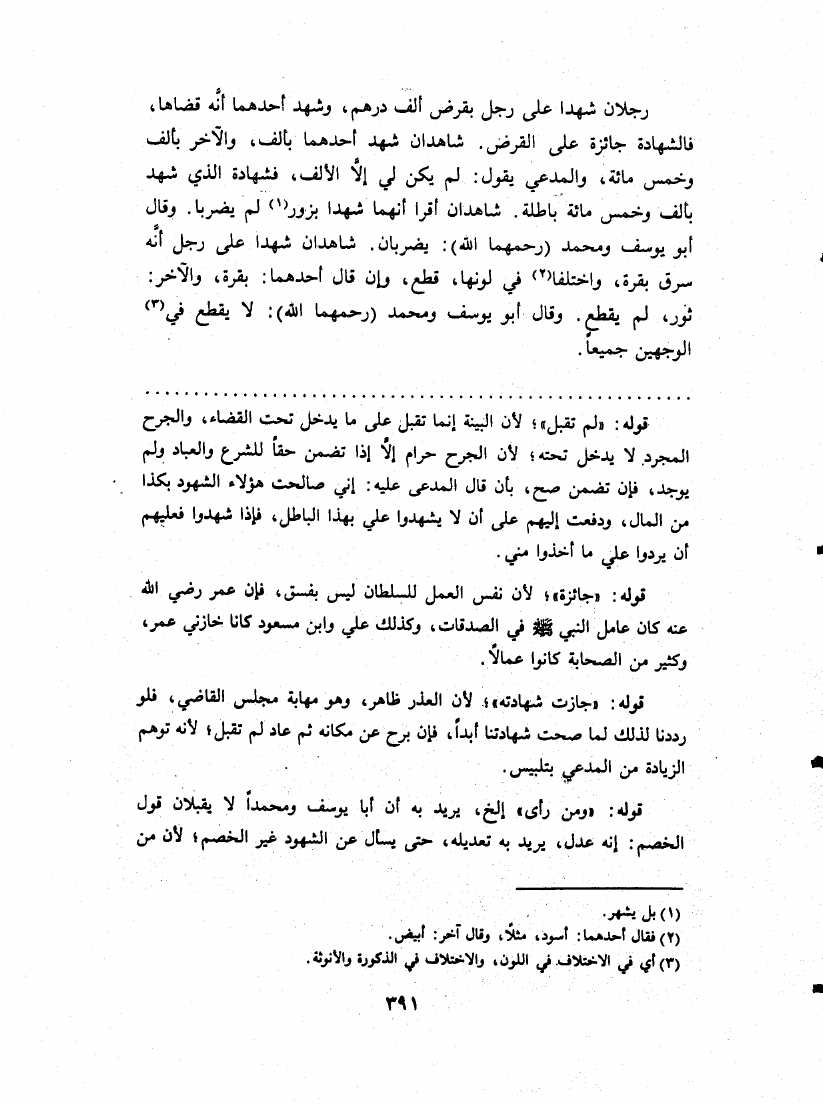 رجلان شهدا على رجل بقرض ألف درهم، وشهد أحدهما أنَّه قضاها،
فالشهادة جائزة على القرض. شاهدان شهد أحدهما بألف، والآخر بألف
وخمس مائة، والمدعي يقول: لم يكن لي إلاَّ الألف، فشهادة الذي شهد
بألف وخمس مائة باطلة. شاهدان أقرا أنهما شهدا بزور(١) لم يضربا. وقال
أبو يوسف ومحمد (رحمهما الله): يضربان. شاهدان شهدا على رجل أنَّه
سرق بقرة، واختلفا(٢) في لونها، قطع، وإن قال أحدهما: بقرة، والآخر:
ثور، لم يقطع. وقال أبو يوسف ومحمد (رحمهما الله): لا يقطع في(٣)
الوجهين جميعاً.
قوله: «لم تقبل»؛ لأن البينة إنما تقبل على ما يدخل تحت القضاء، والجرح
المجرد لا يدخل تحته؛ لأن الجرح حرام إلاَّ إذا تضمن حقاً للشرع والعباد ولم
يوجد، فإن تضمن صح، بأن قال المدعى عليه: إني صالحت هؤلاء الشهود بكذا
من المال، ودفعت إليهم على أن لا يشهدوا علي بهذا الباطل، فإذا شهدوا فعليهم
أن يردوا علي ما أخذوا مني.
قوله: «جائزة»؛ لأن نفس العمل للسلطان ليس بفسق، فإن عمر رضي الله
عنه كان عامل النبي ﷺ في الصدقات، وكذلك علي وابن مسعود كانا خازني عمر،
وكثير من الصحابة كانوا عمالاً.
قوله: «جازت شهادته»؛ لأن العذر ظاهر، وهو مهابة مجلس القاضي، فلو
رددنا لذلك لما صحت شهادتنا أبداً، فإن برح عن مكانه ثم عاد لم تقبل؛ لأنه توهم
الزيادة من المدعي بتلبيس.
قوله: «ومن رأى» إلخ، يريد به أن أبا يوسف ومحمداً لا يقبلان قول
الخصم: إنه عدل، يريد به تعديله، حتى يسأل عن الشهود غير الخصم؛ لأن من
(١) بل يشهر.
(٢) فقال أحدهما: أسود، مثلًا، وقال آخر: أبيض.
(٣) أي في الاختلاف في اللون، والاختلاف في الذكورة والأنوثة.
٣٩١